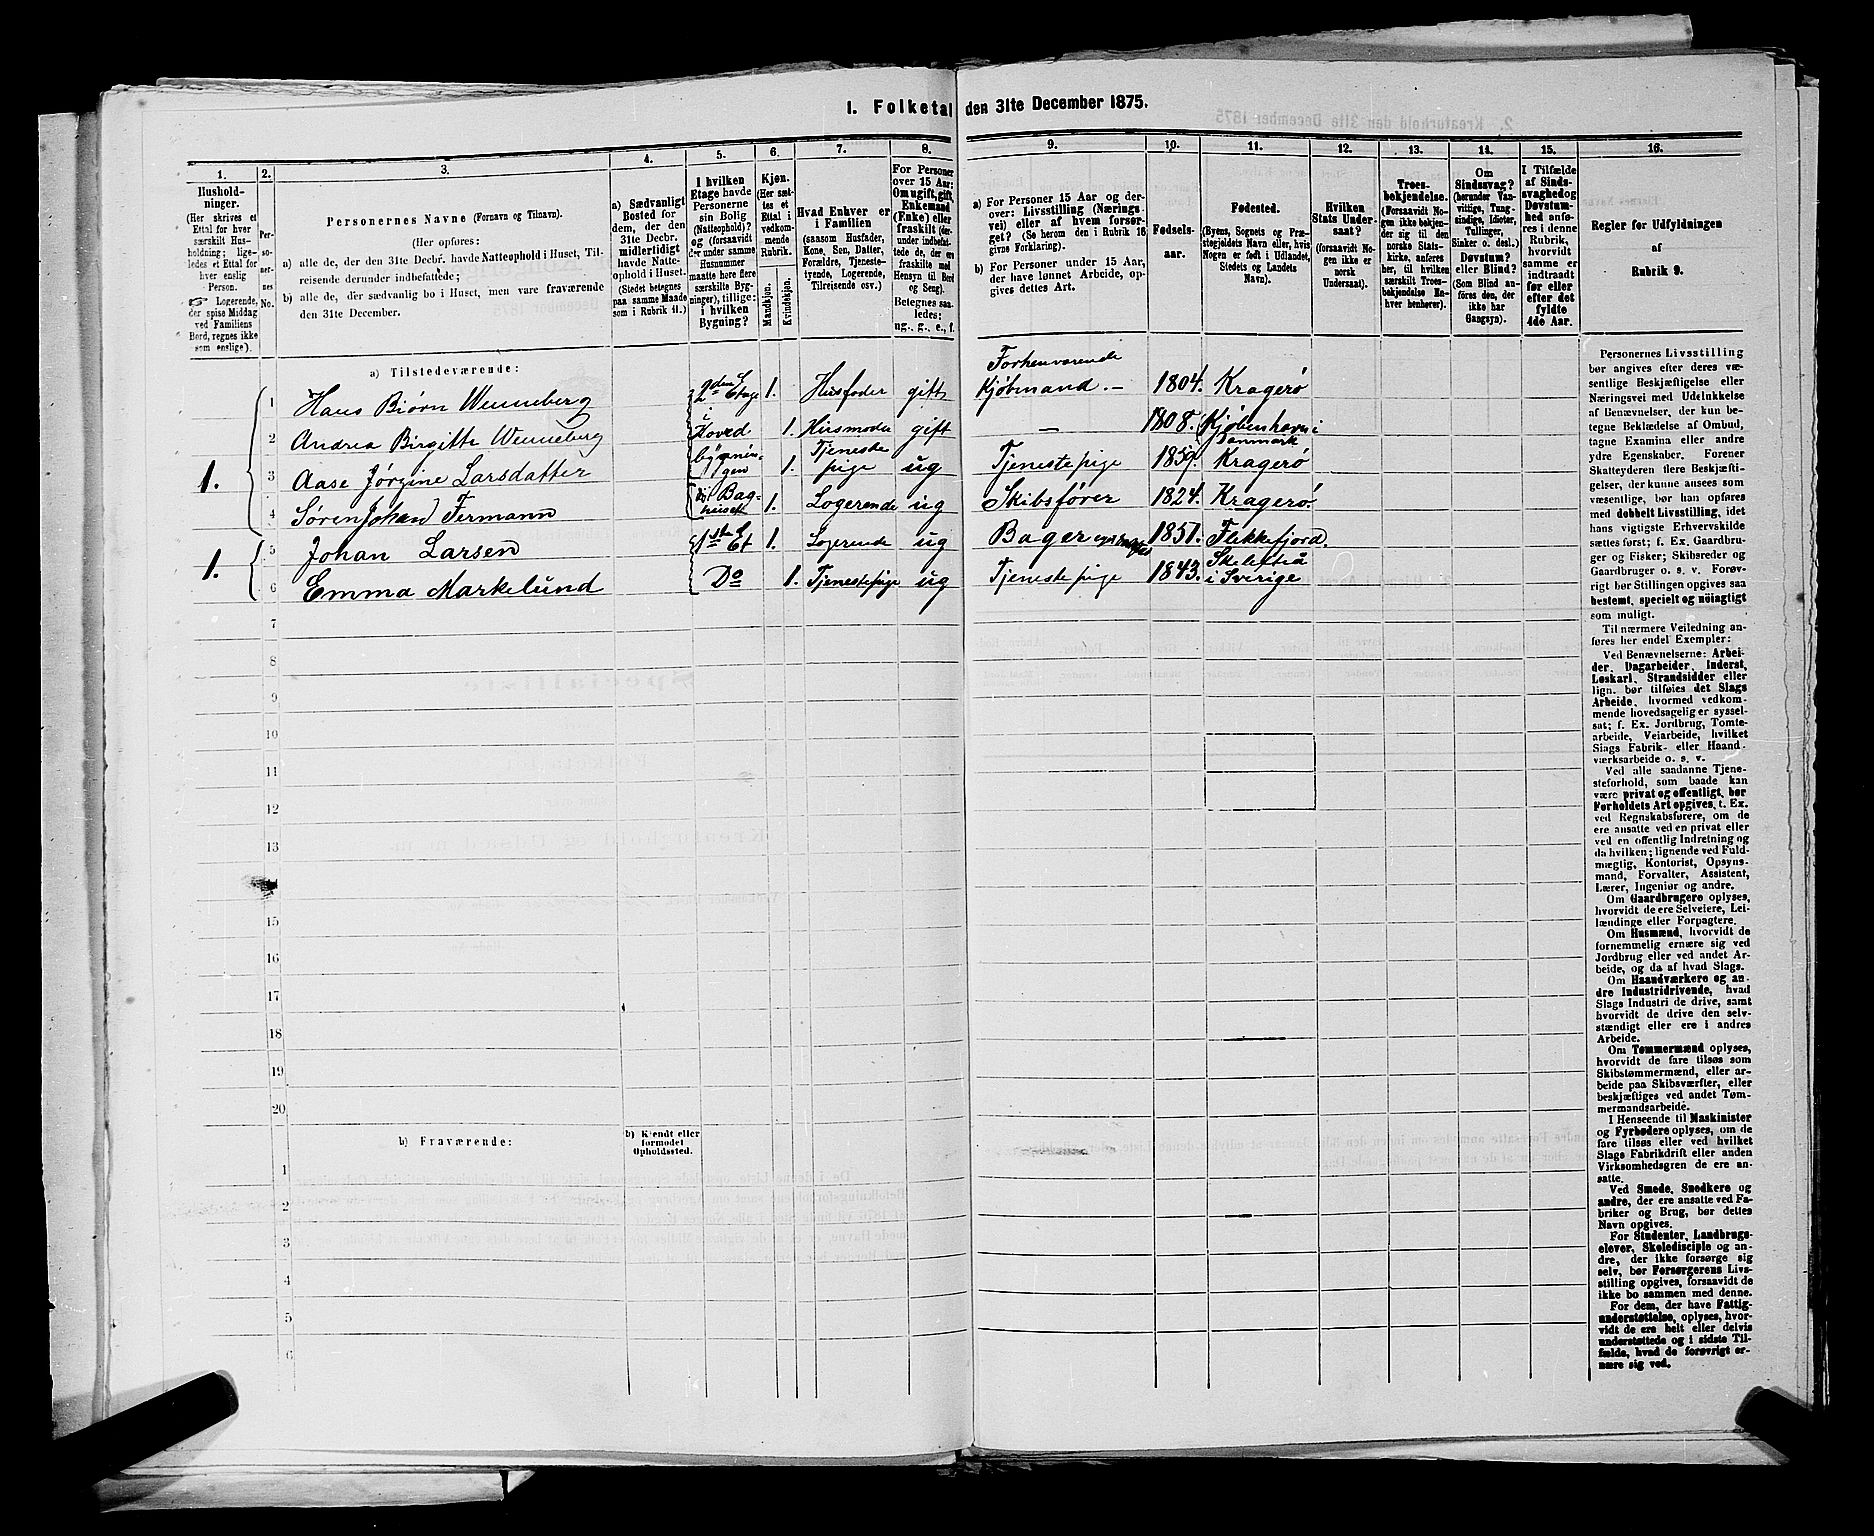 I. Folketal den 31te December 1875.
1. 2. 3. 4. 5. 6. 7. 8. 9. 10. 11. 12. 13. 14. 15. 16.
Hushold-
ninger.
(Her skrives et
Ettal for hver
særskilt Hus-
holdning; lige-
ledes et Ettal for
hver enslig
Person.
☞ Logerende,
der spise Middag
ved Familiens
Bord, regnes ikke
som enslige).
Per-
soner-
nes
No.
Personernes Navne (Fornavn og Tilnavn).
(Her opføres:
a) alle de, der den 31te Decbr. havde Natteophold i Huset, Til-
reisende derunder indbefattede;
b) alle de, der sædvanlig bo i Huset, men vare fraværende
den 31te December.
a) Sædvanligt
Bosted for
dem, der den
31te Decbr.
midlertidigt
havde Natte-
ophold i Huset.
(Stedet betegnes
paa samme Maade
som i Rubrik 11.)
I hvilken
Etage havde
Personerne
sin Bolig
(Natteophold)?
og (forsaavidt
der under samme
Husnummer
maatte høre flere
særskilte Byg-
ninger), tillige:
i hvilken
Bygning?
Kjøn.
(Her sæt-
tes et
Ettal i
vedkom-
mende
Rubrik.
Mandkjøn.
Kvindekjøn.
Hvad Enhver er
i Familien
(saasom Husfader,
Kone, Søn, Datter,
Forældre, Tjeneste-
tyende, Logerende,
Tilreisende osv.)
For Personer
over 15 Aar:
Om ugift, gift,
Enkemand
(Enke) eller
fraskilt (der-
under indbefat-
tede de, der ere
fraskilte med
Hensyn til Bord
og Seng).
Betegnes saa-
ledes:
ug., g., e., f.
a) For Personer 15 Aar og der-
over: Livsstilling (Nærings-
vei) eller af hvem forsør-
get? (Se herom den i Rubrik 16
givne Forklaring).
b) For Personer under 15 Aar,
der have lønnet Arbeide, op-
gives dettes Art.
Fødsels-
aar.
Fødested.
(Byens, Sognets og Præ-
stegjeldets Navn eller, hvis
Nogen er født i Udlandet,
Stedets og Landets
Navn).
Hvilken
Stats Under-
saat?
(forsaavidt No-
gen ikke er
norsk
Undersaat).
Troes-
bekjendelse.
(Forsaavidt No-
gen ikke bekjen-
der sig til den
norske Stats-
kirke, anføres
her, til hvilken
særskilt Troes-
bekjendelse En-
hver henhører).
Om
Sindssvag?
(herunder Van-
vittige, Tung-
sindige, Idioter,
Sinker o. desl.)
Døvstum?
eller Blind?
(Som Blind an-
føres den, der
ikke har
Gangsyn).
I Tilfælde
af Sinds-
svaghed og
Døvstum-
hed anfø-
res i denne
Rubrik,
hvorvidt
samme er
indtraadt
før eller
efter det
fyldte
4de Aar.
Regler for Udfyldningen
af
Rubrik 9.
a) Tilstedeværende:
1. 1 Hans Biørn Wenneberg 2den Etage 1. Husfader gift Forhenværende Kjøbmand — 1804. Kragerø
2 Andrea Birgitte Wenneberg i Hoved 1. Husmoder gift — 1808. Kjøbenhavn i Danmark
3 Aase Jørgine Larsdatter bygnin-gen 1. Tjeneste pige ug Tjenestepige 1859. Kragerø
4 Søren Johan Fermann Bag-huset 1. Logerende ug Skibsfører 1824. Kragerø.
1. 5 Johan Larsen 1ste Et 1. Logerende ug Bager 1851. Flekkefjord.
6 Emma Markelund Do 1. Tjenestepige ug Tjenestepige 1843. Skelefteå i Sverige
7
8
9
10
11
12
13
15
16
17
18
19
20
b) Fraværende:
b) Kjendt eller
formodet
Opholdssted.
1
2
3
4
5
6
Personernes Livsstilling
bør angives efter deres væ-
sentlige Beskjæftigelse eller
Næringsvei med Udelukkelse
af Benævnelser, der kun be-
tegne Beklædelse af Ombud,
tagne Examina eller andre
ydre Egenskaber. Forener
Skatteyderen flere Beskjæfti-
gelser, der kunne ansees som
væsentlige, bør han opføres
med dobbelt Livsstilling, idet
hans vigtigste Erhvervskilde
sættes først; f. Ex. Gaardbru-
ger og Fisker; Skibsreder og
Gaardbruger o. s. v. Forøv-
rigt bør Stillingen opgives saa
bestemt, specielt og nøiagtigt
som muligt.
Til nærmere Veiledning an-
føres her endel Exempler:
Ved Benævnelserne: Arbei-
der, Dagarbeider, Inderst,
Løskarl, Strandsidder eller
lign. bør tilføies det Slags
Arbeide, hvormed vedkom-
mende hovedsagelig er syssel-
sat; f. Ex. Jordbrug, Tomte-
arbeide, Veiarbeide, hvilket
Slags Fabrik- eller Haand-
værksarbeide o. s. v.
Ved alle saadanne Tjene-
steforhold, som baade kan
være privat og offentligt, bør
Forholdets Art opgives, t. Ex.
ved Regnskabsførere, om de
ere ansatte ved en privat eller
ved en offentlig Indretning og
da hvilken; lignende ved Fuld-
mægtig, Kontorist, Opsyns-
mand, Forvalter, Assistent,
Lærer, Ingeniør og andre.
Om Gaardbrugere oplyses,
hvorvidt de ere Selveiere, Lei-
lændinge eller Forpagtere.
Om Husmænd, hvorvidt de
fornemmelig ernære sig ved
Jordbrug eller ved andet Ar-
beide, og da af hvad Slags.
Om Haandværkere og an-
dre Industridrivende, hvad
Slags Industri de drive, samt
hvorvidt de drive den selv-
stændigt eller ere i andres
Arbeide.
Om Tømmermænd oplyses,
hvorvidt de fare tilsøs som
Skibstømmermænd, eller ar-
beide paa Skibsværfter, eller
beskjæftiges ved andet Tøm-
mermandsarbeide.
I Henseende til Maskinister
og Fyrbødere oplyses, om de
fare tilsøs eller ved hvilket
Slags Fabrikdrift eller anden
Virksomhedsgren de ere an-
satte.
Ved Smede, Snedkere og
andre, der ere ansatte ved Fa-
briker og Brug, bør dettes
Navn opgives.
For Studenter, Landbrugs-
elever, Skoledisciple og an-
dre, der ikke forsørge sig
selv, bør Forsørgerens Livs-
stilling opgives, forsaavidt de
ikke bo sammen med denne.
For dem, der have Fattig-
understøttelse, oplyses, hvor-
vidt de ere helt eller delvis
understøttede og i sidste Til-
fælde, hvad de forøvrigt er-
nære sig ved.